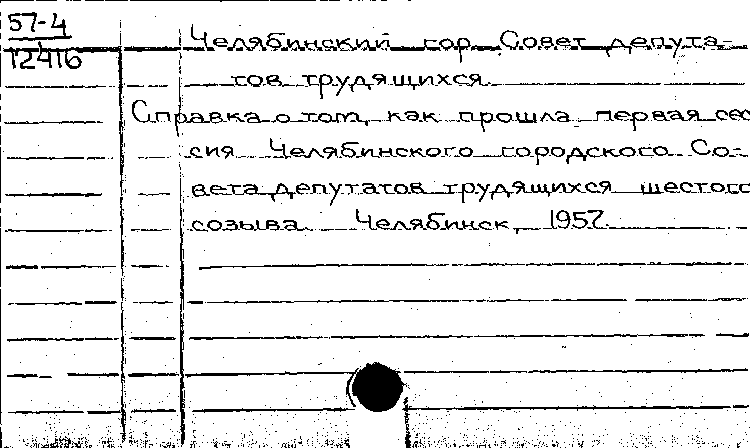 57-4
12416
Челябинский гор. Совет депута-
тов трудящихся.
Справка о том, как прошла первая сес
сия Челябинского городского Со-
вета депутатов трудящихся шестого
созыва. Челябинск, 1957.